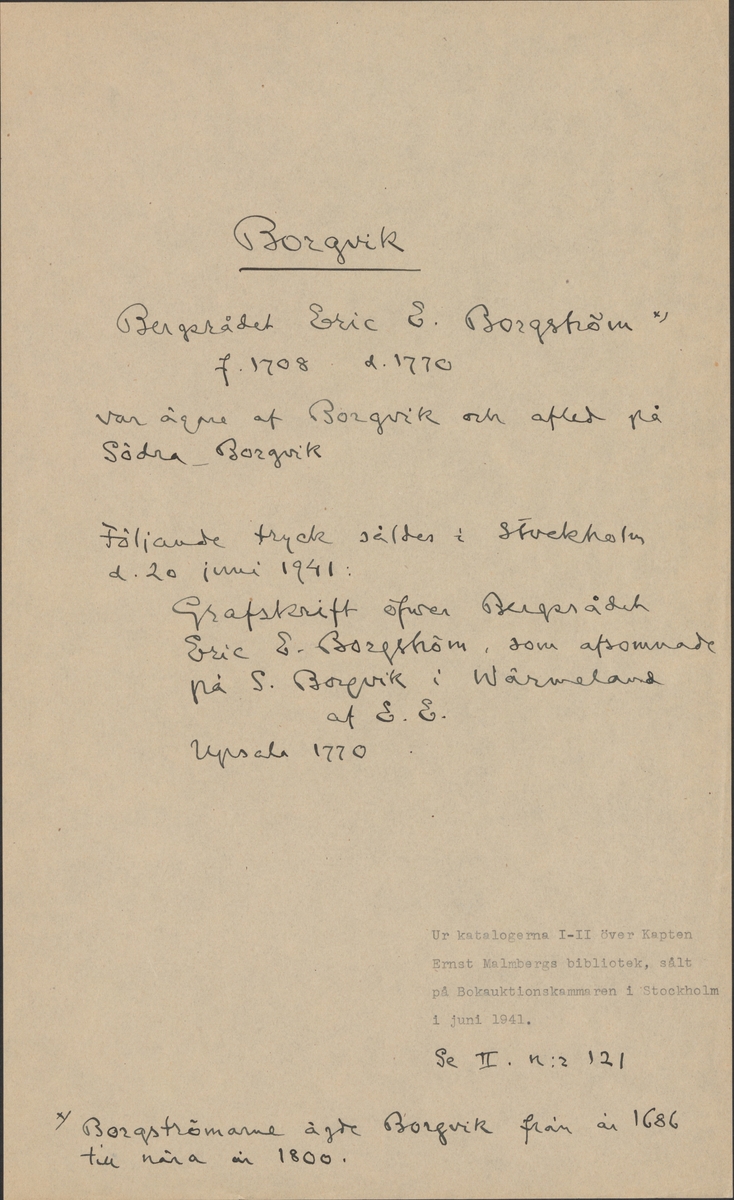 Borgvik
Bergsrådet Eric E. Borgström x)
f. 1708 d. 1770
var ägare af Borgvik och afled på
Södra Borgvik
Följande tryck såldes i Stockholm
d. 20 juni 1941:
Grafskrift öfwer Bergsrådet
Eric E. Borgström, som afsomnade
på S. Borgvik i Wärmeland
af E. E.
Upsala 1770
Ur katalogerna I-II över Kapten
Ernst Malmbergs bibliotek, sålt
på Bokauktionskammaren i Stockholm
i juni 1941.
Se II. n:r 121
x) Borgströmarne ägde Borgvik från år 1686
till nära år 1800.